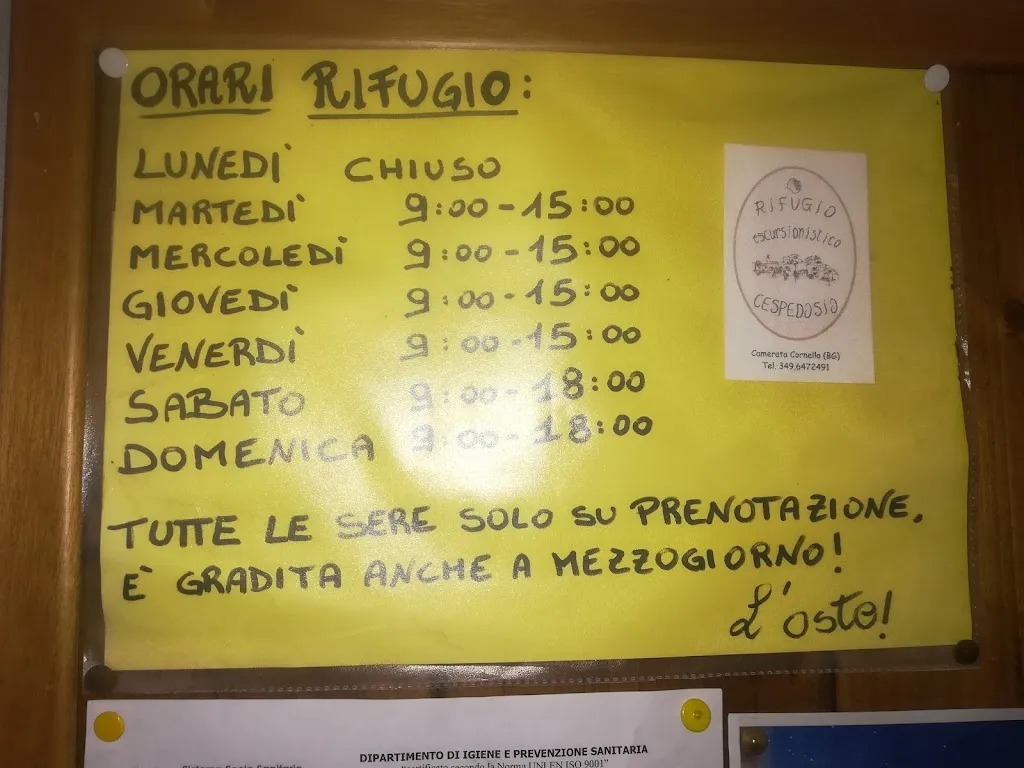 ORARI RIFUGIO:
LUNEDÌ CHIUSO
MARTEDÌ 9:00-15:00
MERCOLEDÌ 9:00-15:00
GIOVEDÌ 9:00-15:00
VENERDÌ 9:00-15:00
SABATO 9:00-18:00
DOMENICA 9:00-18:00
TUTTE LE SERE SOLO SU PRENOTAZIONE.
È GRADITA ANCHE A MEZZOGIORNO!
L'osto!
RIFUGIO
escursionistico
CESPEDOSIO
Camerata Cornello (BG)
Tel. 349.6472491
DIPARTIMENTO DI IGIENE E PREVENZIONE SANITARIA
"certificato secondo la Norma UNI EN ISO 9001"